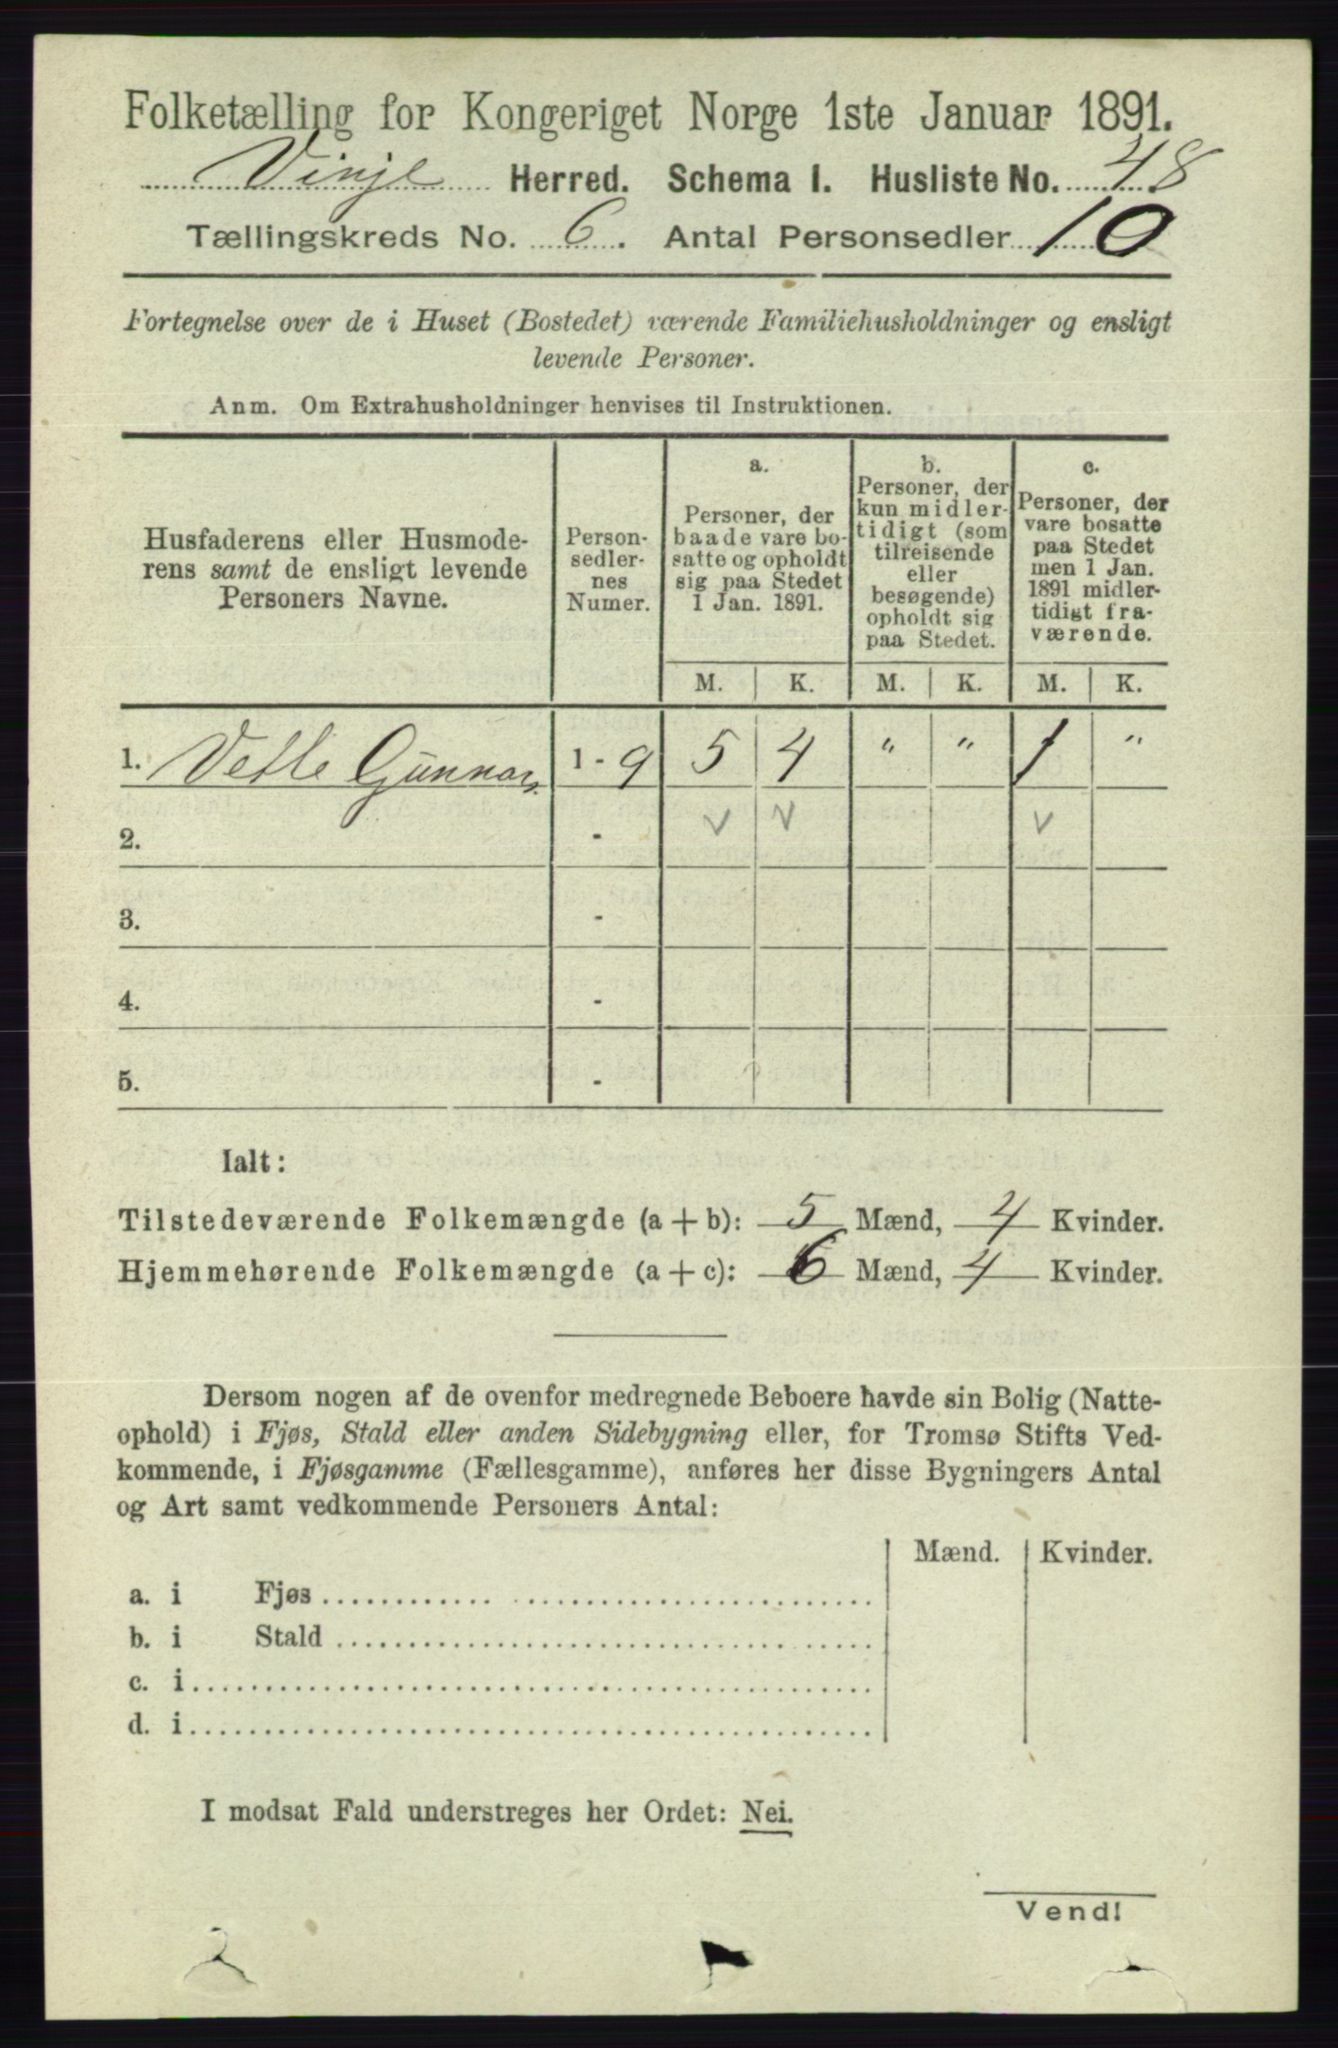 Folketælling for Kongeriget Norge 1ste Januar 1891.
Vinje Herred. Schema I. Husliste No. 48
Tællingskreds No. 6. Antal Personsedler 10
Fortegnelse over de i Huset (Bostedet) værende Familiehusholdninger og ensligt
levende Personer.
Anm. Om Extrahusholdninger henvises til Instruktionen.
Husfaderens eller Husmode-
rens samt de ensligt levende
Personers Navne.
Person-
sedler-
nes
Numer.
a.
Personer, der
baade vare bo-
satte og opholdt
sig paa Stedet
1 Jan. 1891.
b.
Personer, der
kun midler-
tidigt (som
tilreisende
eller
besøgende)
opholdt sig
paa Stedet.
c.
Personer, der
vare bosatte
paa Stedet
men 1 Jan.
1891 midler-
tidigt fra-
værende.
M. K. M. K. M. K.
1. Vetle Gunnars. 1 - 9 5 4 " " 1 "
2. - v v v
3. -
4. -
5. -
Ialt:
Tilstedeværende Folkemængde (a + b): 5 Mænd, 4 Kvinder.
Hjemmehørende Folkemængde (a + c): 6 Mænd, 4 Kvinder.
Dersom nogen af de ovenfor medregnede Beboere havde sin Bolig (Natte-
ophold) i Fjøs, Stald eller anden Sidebygning eller, for Tromsø Stifts Ved-
kommende, i Fjøsgamme (Fællesgamme), anføres her disse Bygningers Antal
og Art samt vedkommende Personers Antal:
Mænd. Kvinder.
a. i Fjøs
b. i Stald
c. i
d. i
I modsat Fald understreges her Ordet: Nei.
Vend!